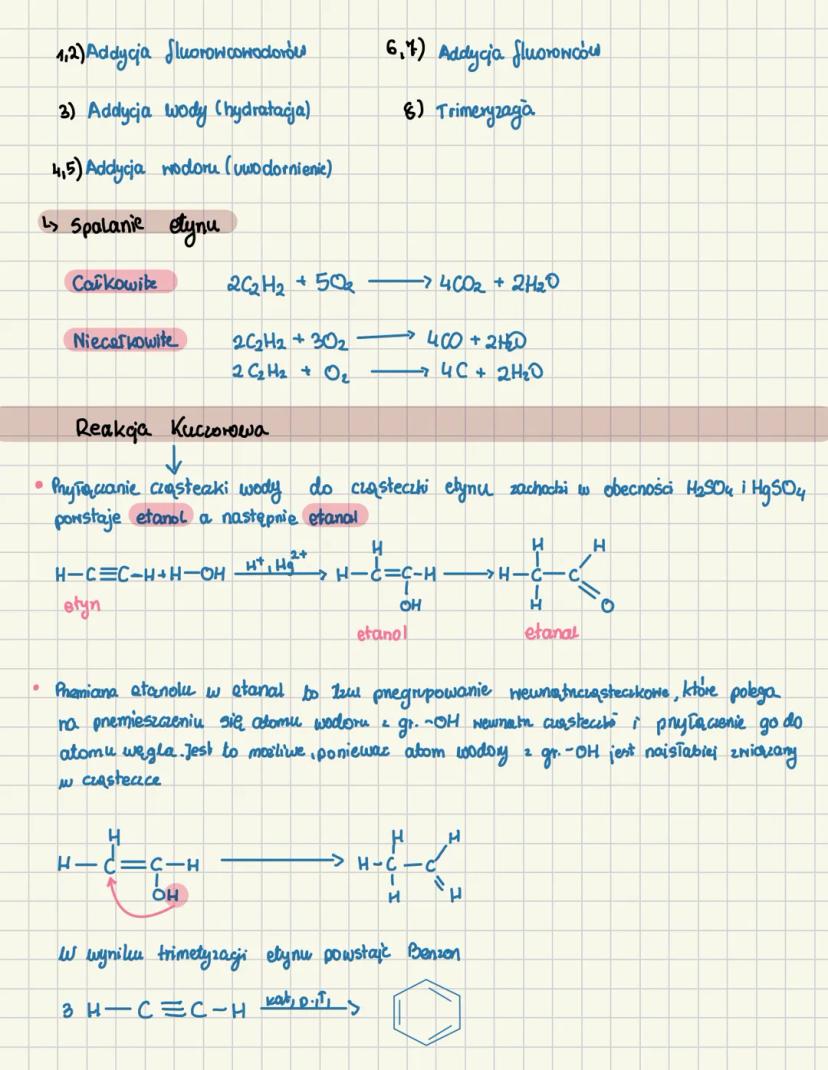 1,2) Addycja fluorowcowodorów
6,7) Addycja fluorowców
3) Addycja wody (hydratacja)
8) Trimeryzacja
4,5) Addycja wodoru (uwodornienie)
↳ Spalanie etynu
Całkowite 2C₂H₂ + 5O₂ ⟶ 4CO₂ + 2H₂O
Niecałkowite 2C₂H₂ + 3O₂ ⟶ 4CO + 2H₂O
2C₂H₂ + O₂ ⟶ 4C + 2H₂O
Reakcja Kuczerowa
• Przyłączanie cząsteczki wody do cząsteczki etynu zachodzi w obecności H₂SO₄ i HgSO₄
powstaje etenol a następnie etanal
H-C≡C-H + H-OH H⁺, Hg²⁺ ⟶ H-C=C-H ⟶ H-C-C
H H H
OH H O
etyn
etenol etanal
• Przemiana etenolu w etanal to tzw przegrupowanie wewnątrzcząsteczkowe, które polega
na przemieszczeniu się atomu wodoru z gr. -OH wewnątrz cząsteczki i przyłączenie go do
atomu węgla. Jest to możliwe, ponieważ atom wodoru z gr. -OH jest najsłabiej związany
w cząsteczce
H H H
H-C=C-H ⟶ H-C-C
OH H H
W wyniku trimeryzacji etynu powstaje Benzen
3 H-C≡C-H kat, p, T, ⟶